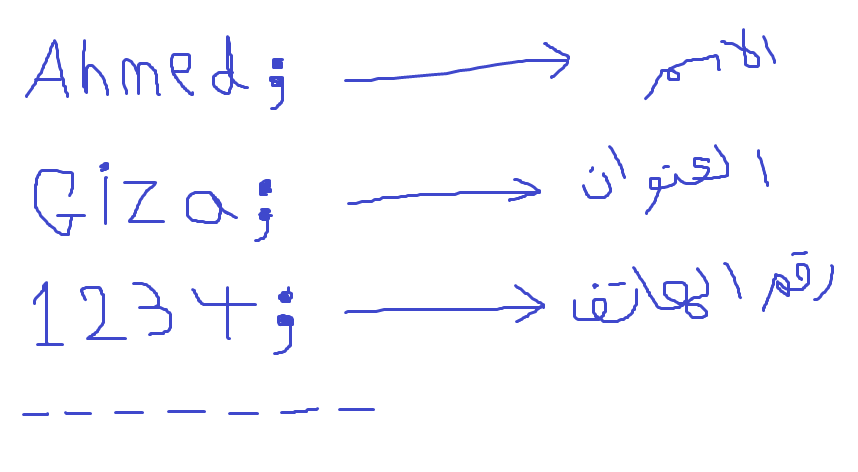 Ahmed; → الاسم
Giza; → العنوان
1234; → رقم الهاتف
-------